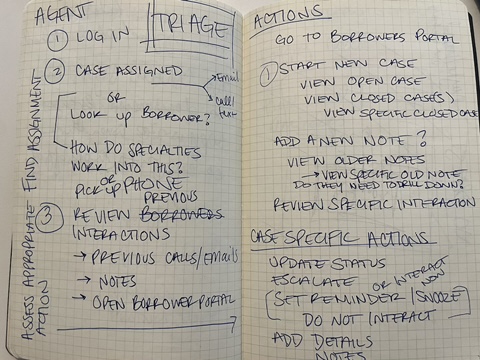 AGENT
TRIAGE
① LOG IN
② CASE ASSIGNED
→ Email
→ call/
text
OR
LOOK UP BORROWER?
HOW DO SPECIALTIES
WORK INTO THIS?
OR
PICK UP PHONE
PREVIOUS
③ REVIEW BORROWERS
INTERACTIONS
→ PREVIOUS CALLS/EMAILS
→ NOTES
→ OPEN BORROWER PORTAL
FIND ASSIGNMENT
ASSESS APPROPRIATE
ACTION
ACTIONS
GO TO BORROWERS PORTAL
① START NEW CASE
VIEW OPEN CASE
VIEW CLOSED CASE(S)
VIEW SPECIFIC CLOSED CASE
ADD A NEW NOTE?
VIEW OLDER NOTES
→ VIEW SPECIFIC OLD NOTE
DO THEY NEED TO DRILL DOWN?
REVIEW SPECIFIC INTERACTION
CASE SPECIFIC ACTIONS
UPDATE STATUS
ESCALATE OR INTERACT
NOW
SET REMINDER/SNOOZE
DO NOT INTERACT
ADD DETAILS
NOTES